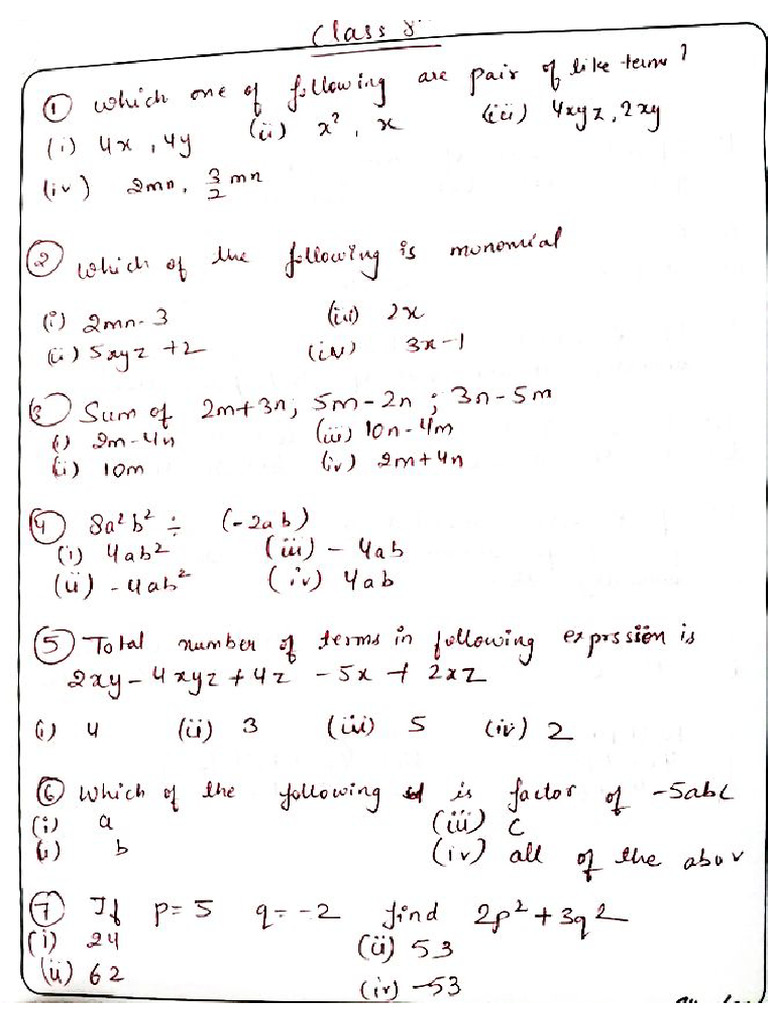 Class 8
① Which one of following are pair of like term?
(i) 4x , 4y (ii) x², x (iii) 4xyz, 2xy
(iv) 2mn, 3/2 mn
② Which of the following is monomial
(i) 2mn-3 (iii) 2x
(ii) 5xyz +2 (iv) 3x-1
③ Sum of 2m+3n; 5m-2n ; 3n-5m
(i) 2m-4n (iii) 10n-4m
(ii) 10m (iv) 2m+4n
④ 8a²b² ÷ (-2ab)
(i) 4ab² (iii) -4ab
(ii) -4ab² (iv) 4ab
⑤ Total number of terms in following exprssion is
2xy-4xyz+4z -5x + 2xz
(i) 4 (ii) 3 (iii) 5 (iv) 2
⑥ Which of the following is factor of -5abc
(i) a (iii) c
(ii) b (iv) all of the abov
⑦ If p=5 q=-2 find 2p²+3q2
(i) 24 (ii) 53
(ii) 62 (iv) -53